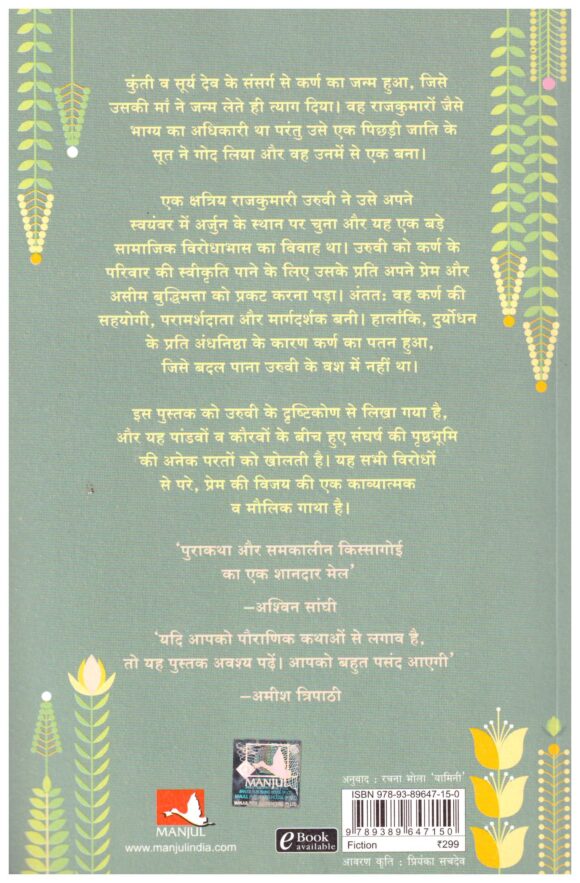 कुंती व सूर्य देव के संसर्ग से कर्ण का जन्म हुआ, जिसे
उसकी मां ने जन्म लेते ही त्याग दिया। वह राजकुमारों जैसे
भाग्य का अधिकारी था परंतु उसे एक पिछड़ी जाति के
सूत ने गोद लिया और वह उनमें से एक बना।
एक क्षत्रिय राजकुमारी उरुवी ने उसे अपने
स्वयंवर में अर्जुन के स्थान पर चुना और यह एक बड़े
सामाजिक विरोधाभास का विवाह था। उरुवी को कर्ण के
परिवार की स्वीकृति पाने के लिए उसके प्रति अपने प्रेम और
असीम बुद्धिमत्ता को प्रकट करना पड़ा। अंततः वह कर्ण की
सहयोगी, परामर्शदाता और मार्गदर्शक बनी। हालांकि, दुर्योधन
के प्रति अंधनिष्ठा के कारण कर्ण का पतन हुआ,
जिसे बदल पाना उरुवी के वश में नहीं था।
इस पुस्तक को उरुवी के दृष्टिकोण से लिखा गया है,
और यह पांडवों व कौरवों के बीच हुए संघर्ष की पृष्ठभूमि
की अनेक परतों को खोलती है। यह सभी विरोधों
से परे, प्रेम की विजय की एक काव्यात्मक
व मौलिक गाथा है।
'पुराकथा और समकालीन किस्सागोई
का एक शानदार मेल'
—अश्विन सांघी
'यदि आपको पौराणिक कथाओं से लगाव है,
तो यह पुस्तक अवश्य पढ़ें। आपको बहुत पसंद आएगी'
—अमीश त्रिपाठी
MANJUL
MANJUL
www.manjulindia.com
eBook
available
अनुवाद : रचना भोला 'यामिनी'
ISBN 978-93-89647-15-0
9 789389 647150
Fiction ₹299
आवरण कृति : प्रियंका सचदेव